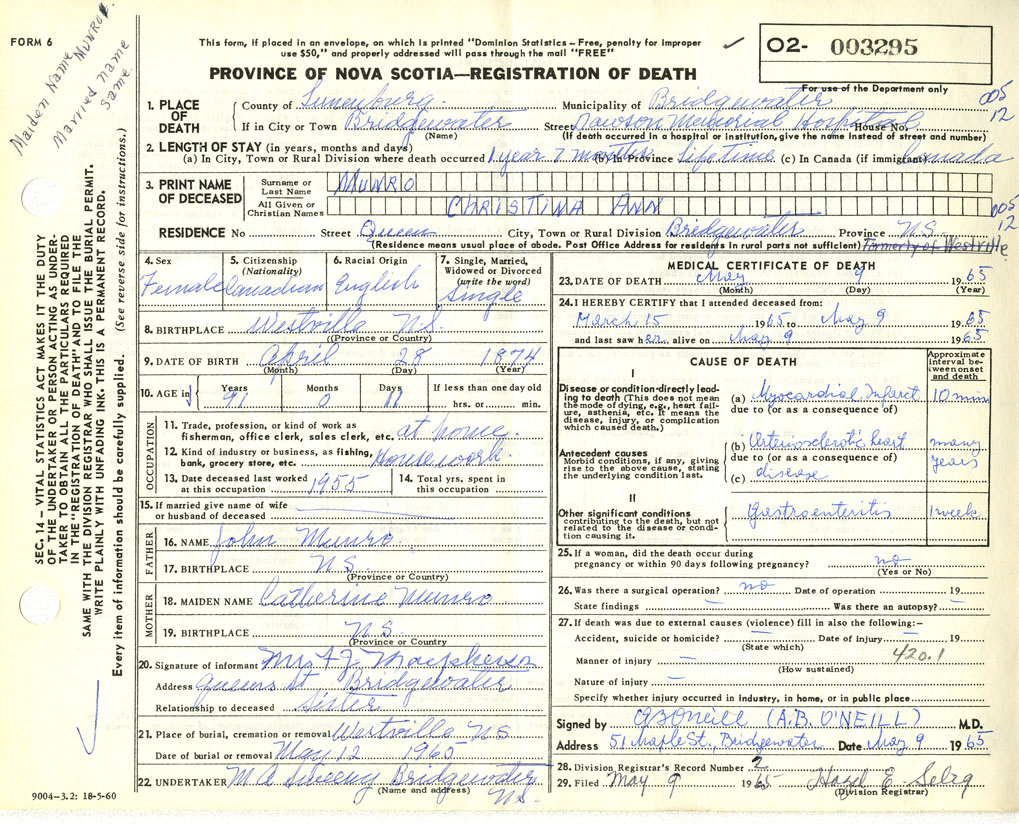 FORM 6
Maiden Name MUNRO.
Married name
Same
This form, if placed in an envelope, on which is printed "Dominion Statistics – Free, penalty for improper
use $50," and properly addressed will pass through the mail "FREE"
PROVINCE OF NOVA SCOTIA—REGISTRATION OF DEATH
O2- 003295
For use of the Department only
1. PLACE OF DEATH
County of Lunenburg. Municipality of Bridgewater
005
12
If in City or Town Bridgewater Street Dawson Memorial Hospital House No.
(Name) (If death occurred in a hospital or institution, give the name instead of street and number)
2. LENGTH OF STAY (in years, months and days)
(a) In City, Town or Rural Division where death occurred 1 year 7 months (b) In Province Life time (c) In Canada (if immigrant) Canada
3. PRINT NAME OF DECEASED
Surname or Last Name MUNRO
All Given or Christian Names CHRISTINA ANN
005
12
RESIDENCE No Street Queen City, Town or Rural Division Bridgewater Province N.S.
(Residence means usual place of abode. Post Office Address for residents in rural parts not sufficient) Formerly of Westville
SEC. 14 – VITAL STATISTICS ACT MAKES IT THE DUTY
OF THE UNDERTAKER OR PERSON ACTING AS UNDER-
TAKER TO OBTAIN ALL THE PARTICULARS REQUIRED
IN THE "REGISTRATION OF DEATH" AND TO FILE THE
SAME WITH THE DIVISION REGISTRAR WHO SHALL ISSUE THE BURIAL PERMIT.
WRITE PLAINLY WITH UNFADING INK. THIS IS A PERMANENT RECORD.
Every item of information should be carefully supplied. (See reverse side for instructions.)
4. Sex Female
5. Citizenship (Nationality) Canadian
6. Racial Origin English
7. Single, Married, Widowed or Divorced (write the word) Single
8. BIRTHPLACE Westville N.S.
(Province or Country)
9. DATE OF BIRTH April 28 1874
(Month) (Day) (Year)
10. AGE in Years 91 Months 0 Days 11 If less than one day old
hrs. or min.
OCCUPATION
11. Trade, profession, or kind of work as
fisherman, office clerk, sales clerk, etc. at home.
12. Kind of industry or business, as fishing,
bank, grocery store, etc. Housework.
13. Date deceased last worked
at this occupation 1955
14. Total yrs. spent in
this occupation
15. If married give name of wife
or husband of deceased
FATHER
16. NAME John Munro
17. BIRTHPLACE N.S.
(Province or Country)
MOTHER
18. MAIDEN NAME Catherine Munro
19. BIRTHPLACE N.S.
(Province or Country)
20. Signature of informant Mrs F. J. Macpherson
Address Queens St Bridgewater
Relationship to deceased Sister
21. Place of burial, cremation or removal Westville N.S.
Date of burial or removal May 12 1965
22. UNDERTAKER M A Sweeny Bridgewater
(Name and address) N.S.
9004–3.2: 18-5-60
MEDICAL CERTIFICATE OF DEATH
23. DATE OF DEATH May 9 1965
(Month) (Day) (Year)
24. I HEREBY CERTIFY that I attended deceased from:
March 15 1965 to May 9 1965
and last saw her alive on May 9 1965
CAUSE OF DEATH
Approximate interval between onset and death
I
Disease or condition directly leading to death (This does not mean the mode of dying, e.g., heart failure, asthenia, etc. It means the disease, injury, or complication which caused death.)
(a) Myocardial Infarct 10 mins
due to (or as a consequence of)
Antecedent causes
Morbid conditions, if any, giving rise to the above cause, stating the underlying condition last.
(b) Arteriosclerotic heart many
due to (or as a consequence of) years
(c) disease
II
Other significant conditions
contributing to the death, but not related to the disease or condition causing it.
Gastroenteritis 1 week
25. If a woman, did the death occur during
pregnancy or within 90 days following pregnancy? no
(Yes or No)
26. Was there a surgical operation? no Date of operation 19
State findings Was there an autopsy?
27. If death was due to external causes (violence) fill in also the following:–
Accident, suicide or homicide? Date of injury 19
(State which) 420.1
Manner of injury
(How sustained)
Nature of injury
Specify whether injury occurred in industry, in home, or in public place
Signed by ABONeill (A.B. O'NEILL) M.D.
Address 51 Maple St., Bridgewater Date May 9 1965
28. Division Registrar's Record Number 2
29. Filed May 9 1965 Hazel E. Selig
(Division Registrar)